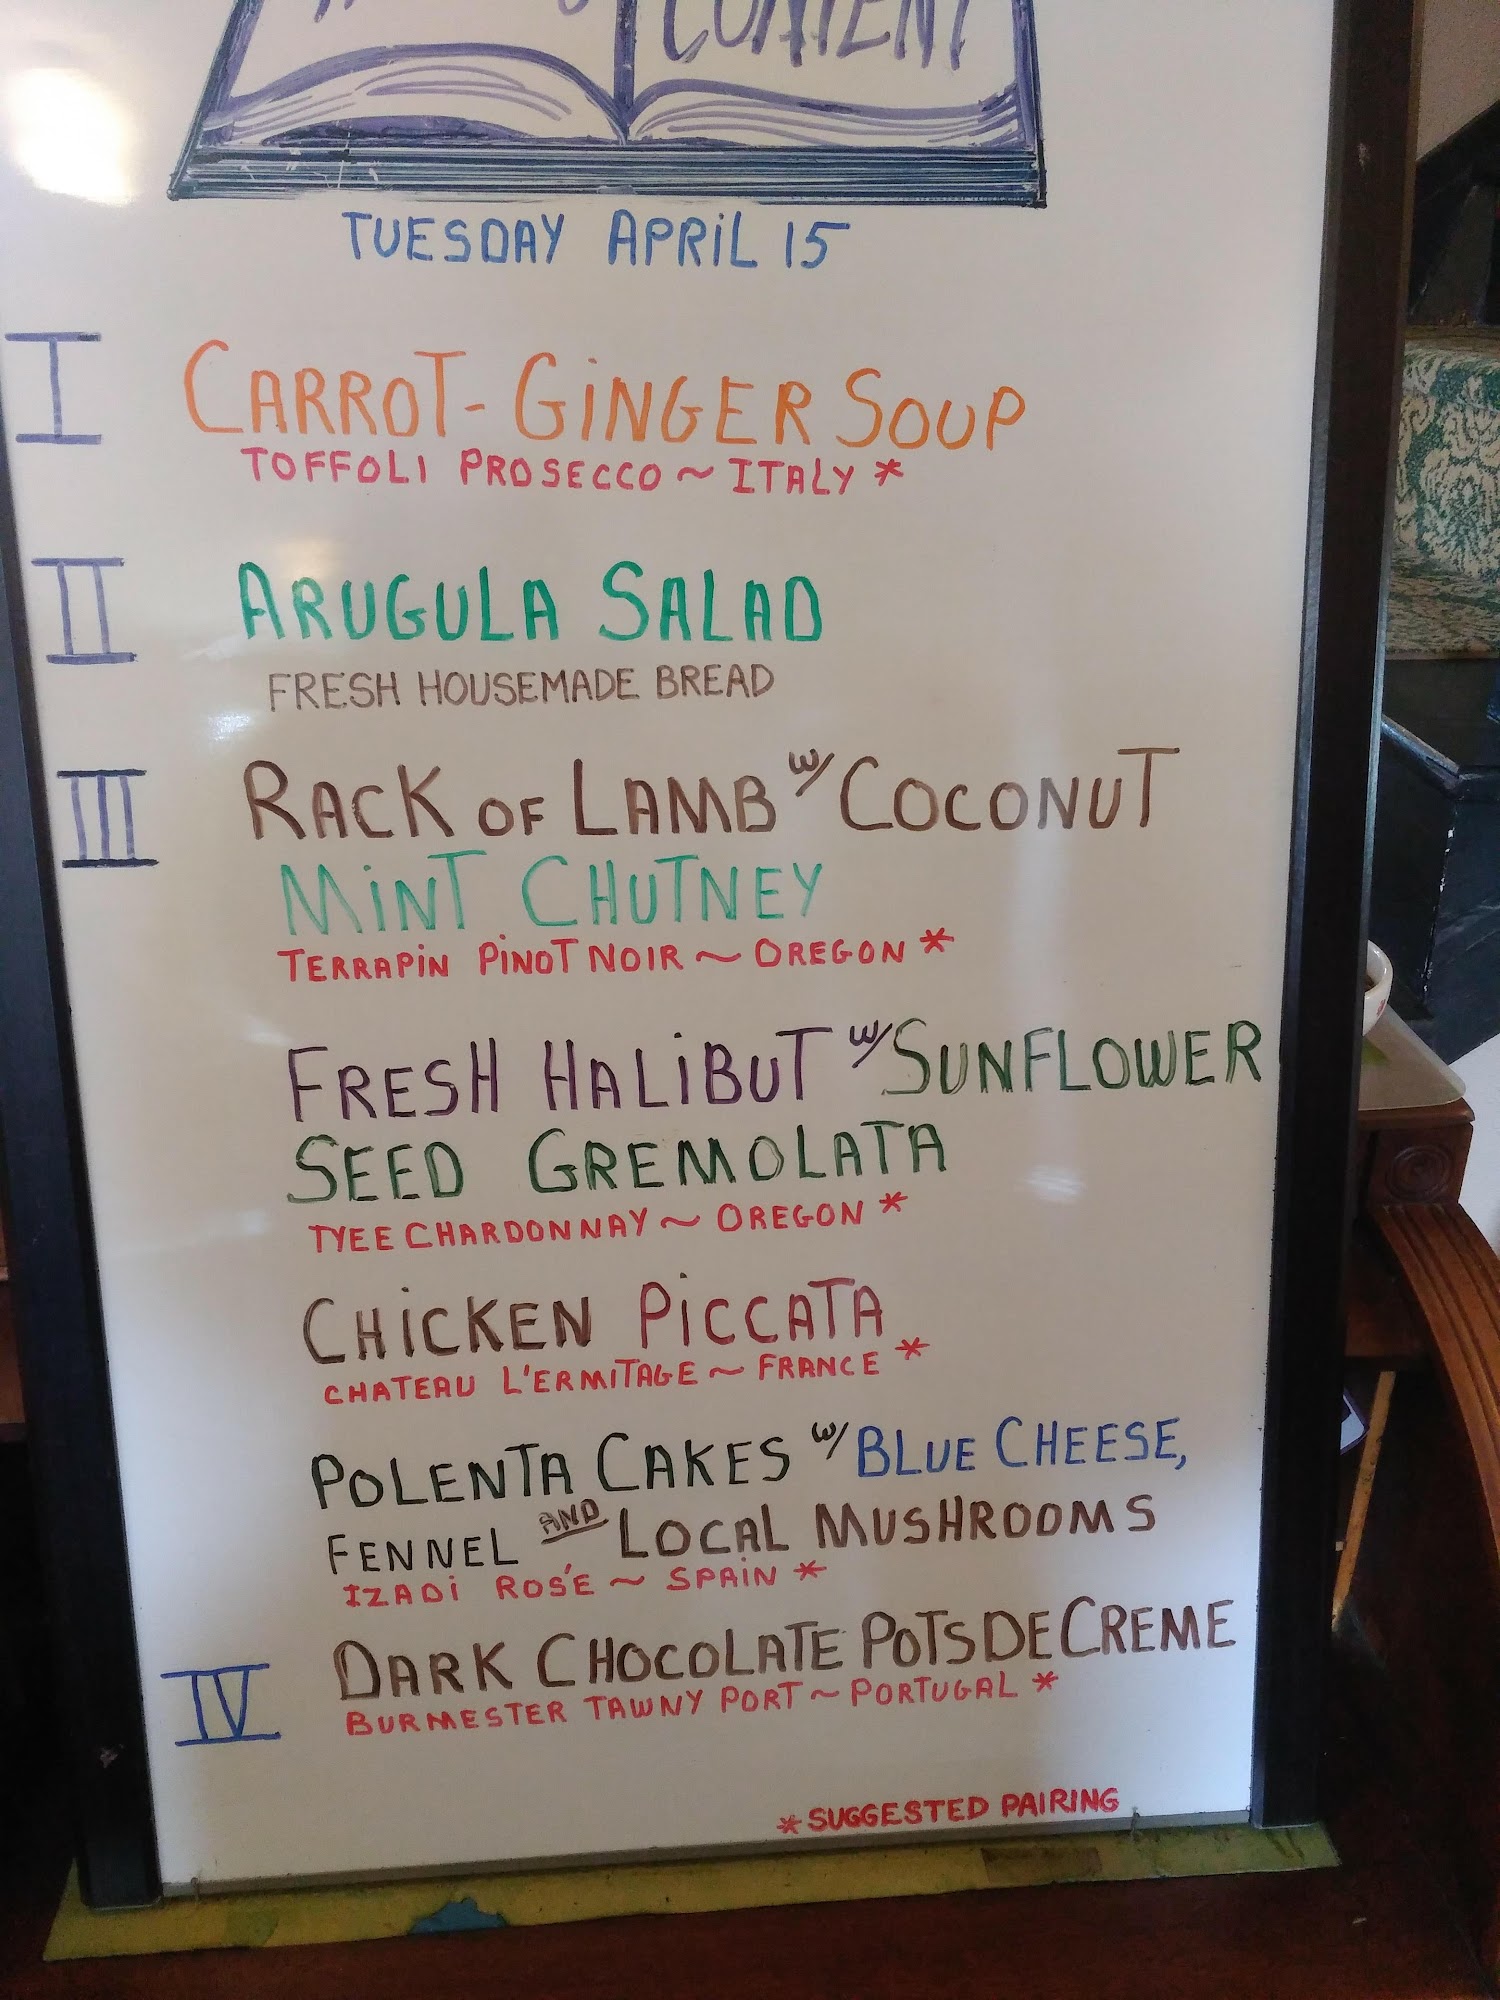 CONTENT
TUESDAY APRIL 15
I
CARROT-GINGER SOUP
TOFFOLI PROSECCO ~ ITALY *
II
ARUGULA SALAD
FRESH HOUSEMADE BREAD
III
RACK OF LAMB W/ COCONUT
MINT CHUTNEY
TERRAPIN PINOT NOIR ~ OREGON *
FRESH HALIBUT W/ SUNFLOWER
SEED GREMOLATA
TYEE CHARDONNAY ~ OREGON *
CHICKEN PICCATA
CHATEAU L'ERMITAGE ~ FRANCE *
POLENTA CAKES W/ BLUE CHEESE,
FENNEL AND LOCAL MUSHROOMS
IZADI ROSÉ ~ SPAIN *
IV
DARK CHOCOLATE POTS DE CREME
BURMESTER TAWNY PORT ~ PORTUGAL *
* SUGGESTED PAIRING